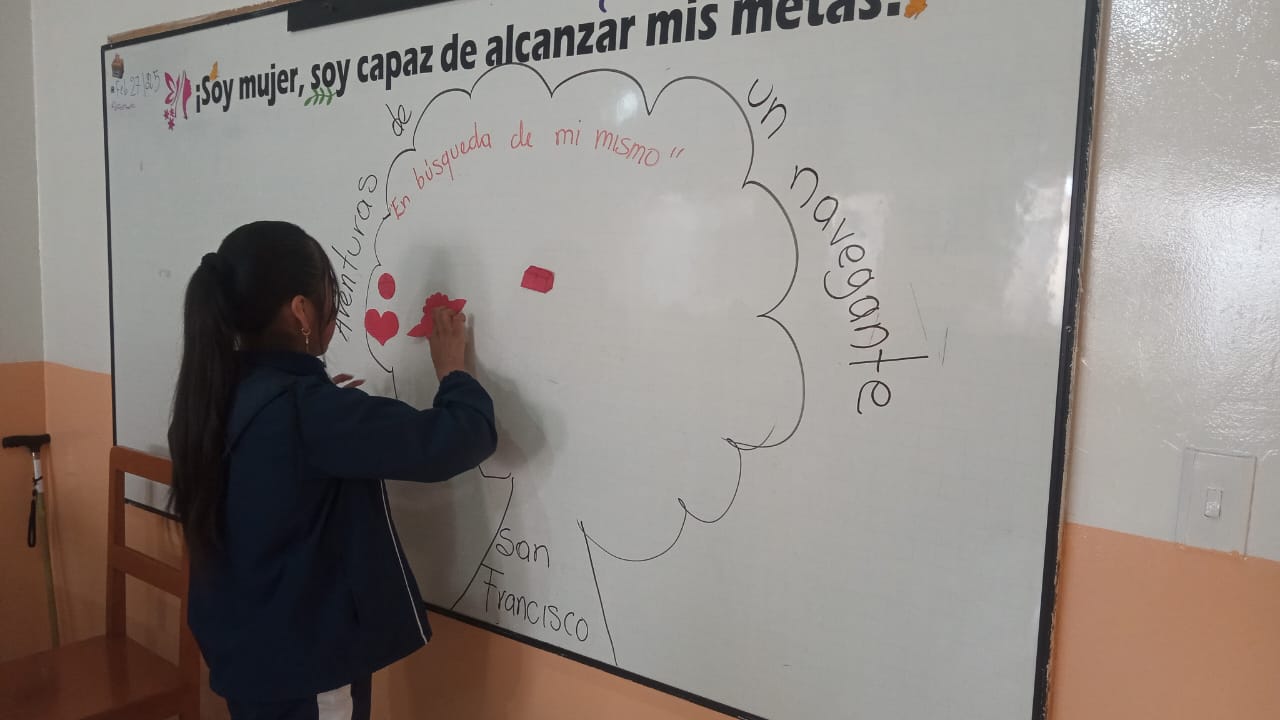 ¡Soy mujer, soy capaz de alcanzar mis metas!
Feb 27/25
Aventuras de un navegante
"En búsqueda de mi mismo"
San
Francisco